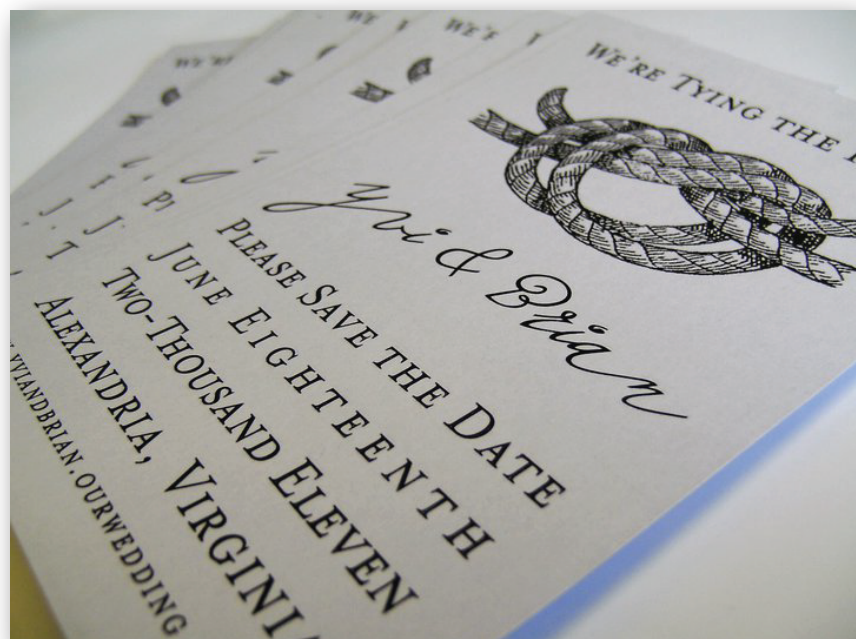 We're Tying the
Yvi & Brian
Please Save the Date
June Eighteenth
Two-Thousand Eleven
Alexandria, Virginia
yviandbrian.ourwedding
We're
We'r